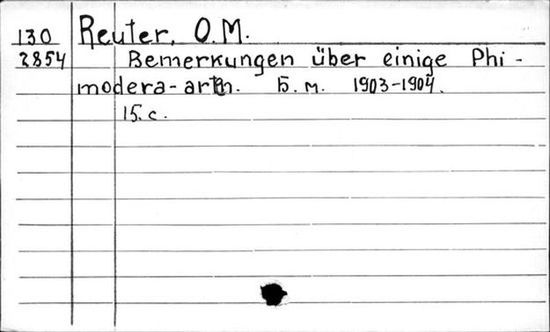 130 Reuter, O.M.
2854 Bemerkungen über einige Phi-
modera-arten. Б.м. 1903-1904.
15.с.